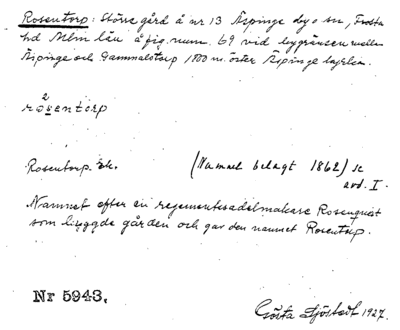 Rosentorp: Större gård å nr 13 Äspinge by o sn, Frosta
hd Mlm län å fig. num. 69 vid bygränsen mellan
Äspinge och Gammalstorp 1800 m. öster Äspinge
2
rosentorp
Rosentorp. ek. (Namnet belagt 1862) se
avd. I.
Namnet efter en regementssadelmakare Rosenquist
som bebyggde gården och gav den namnet Rosentorp.
Nr 5943.
Gösta Sjöstedt 1927.